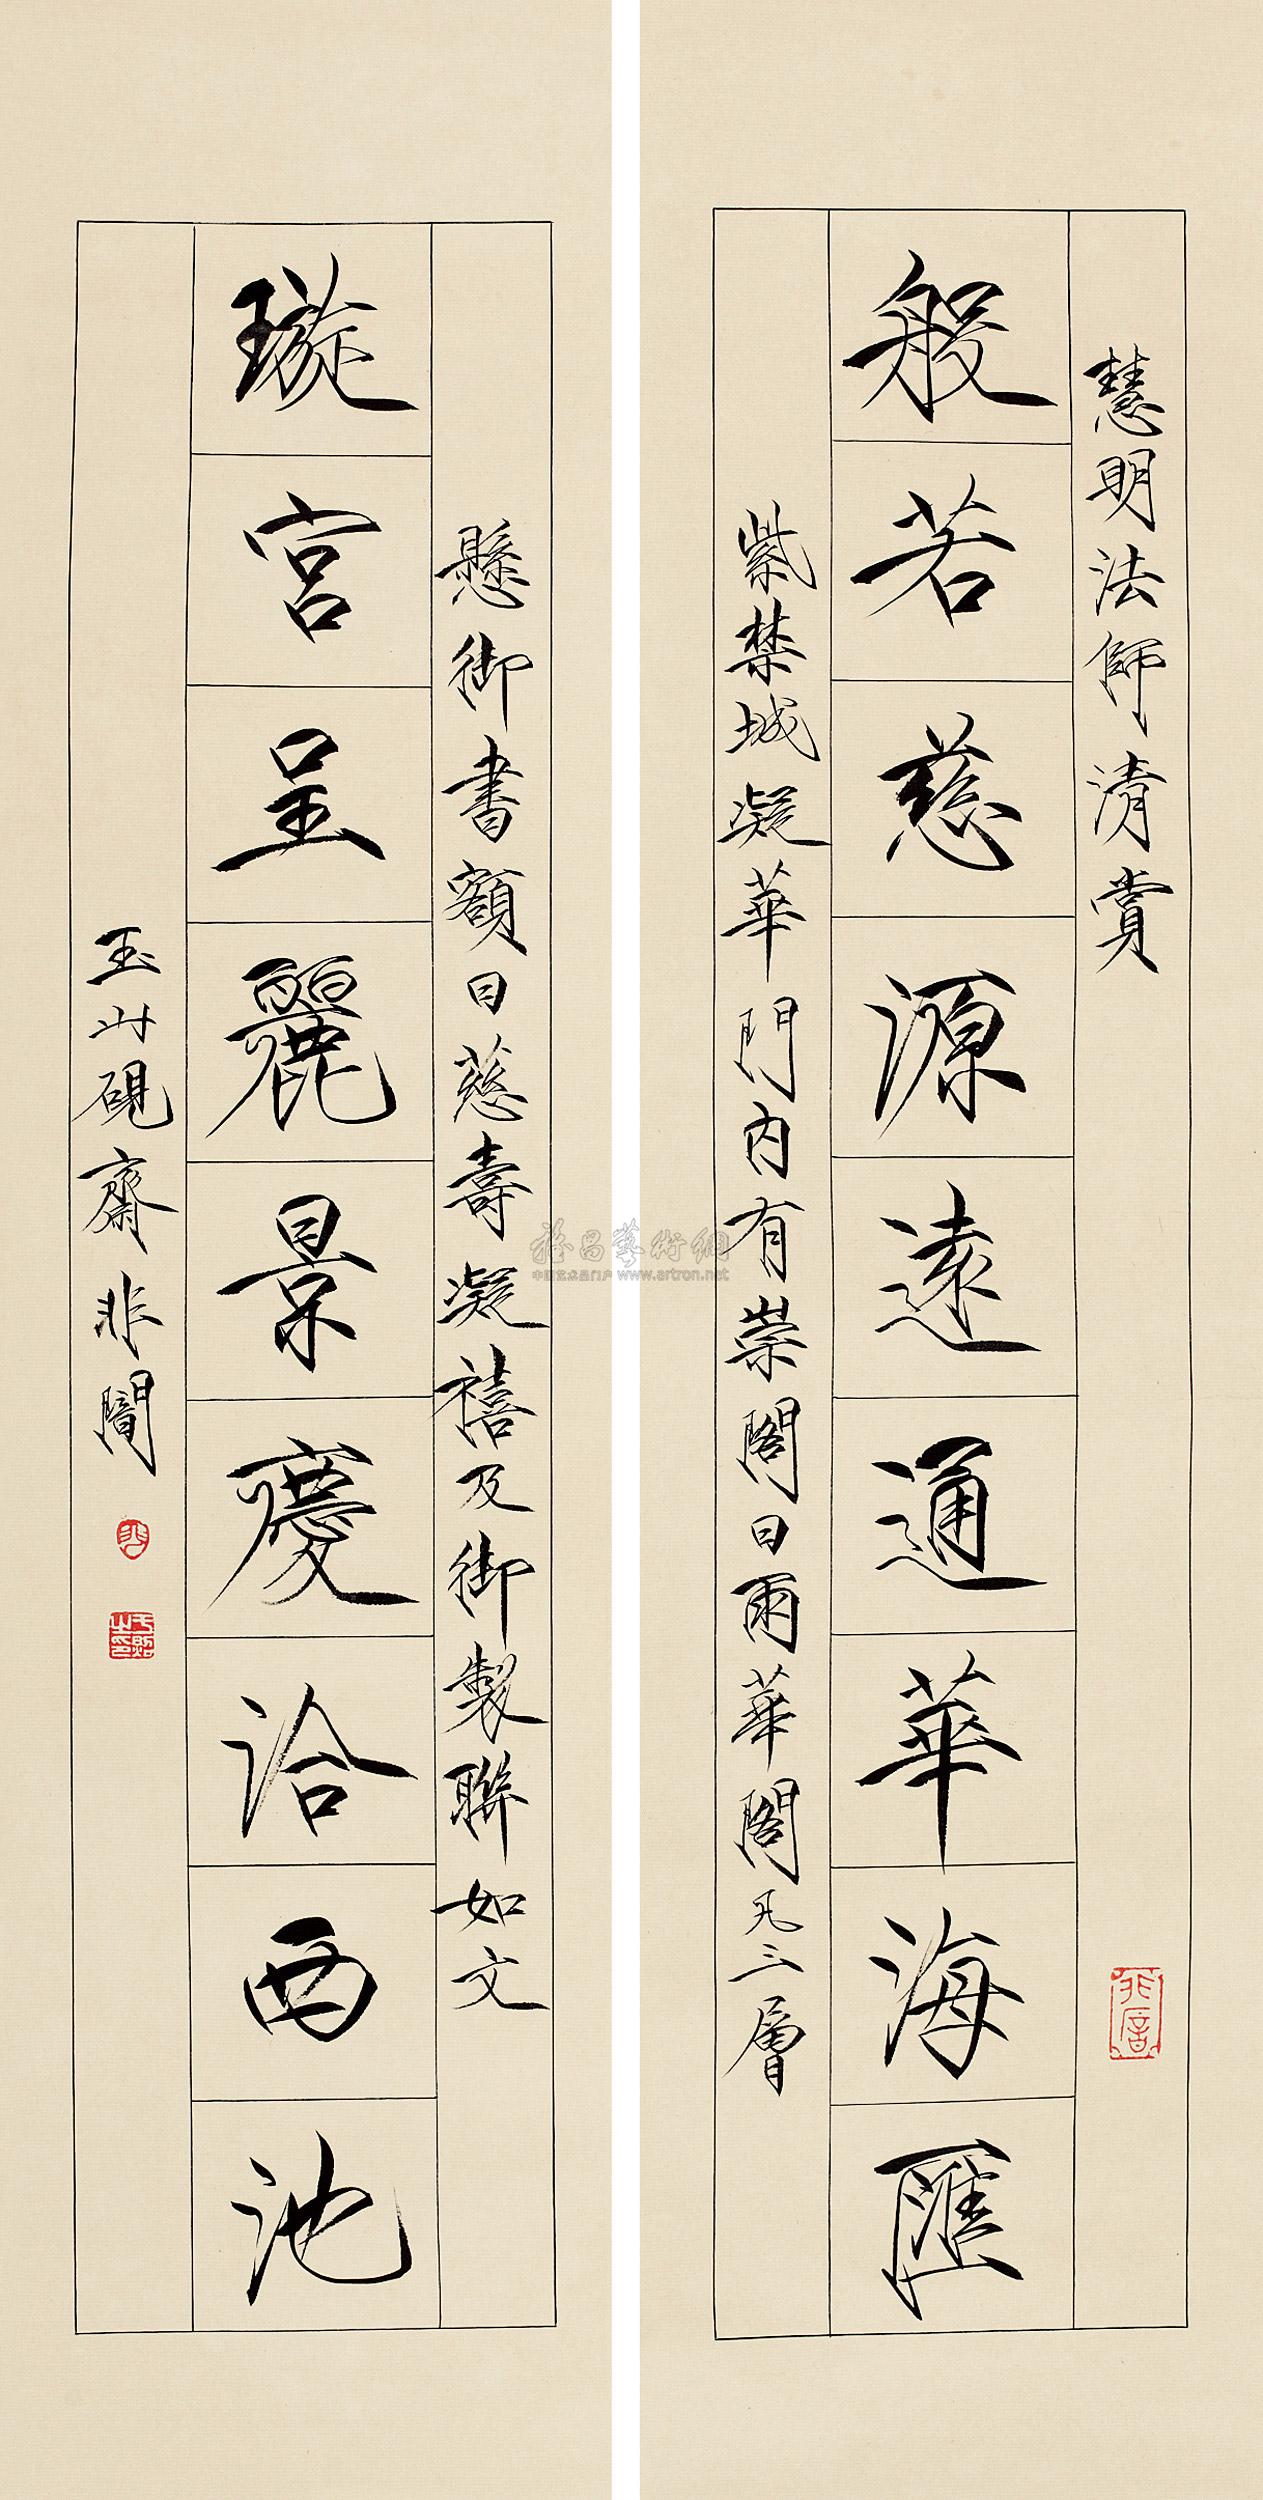 慧明法師清賞
般若慈源遠通華海匯
紫禁城凝華門内有崇閣曰雨華閣凡三層
懸御書額曰慈壽凝禧及御製聯如文
璇宮呈麗景慶洽西池
玉山硯齋非闇
非闇
于照之印
雅昌藝術網
中国艺术品门户 www.artron.net